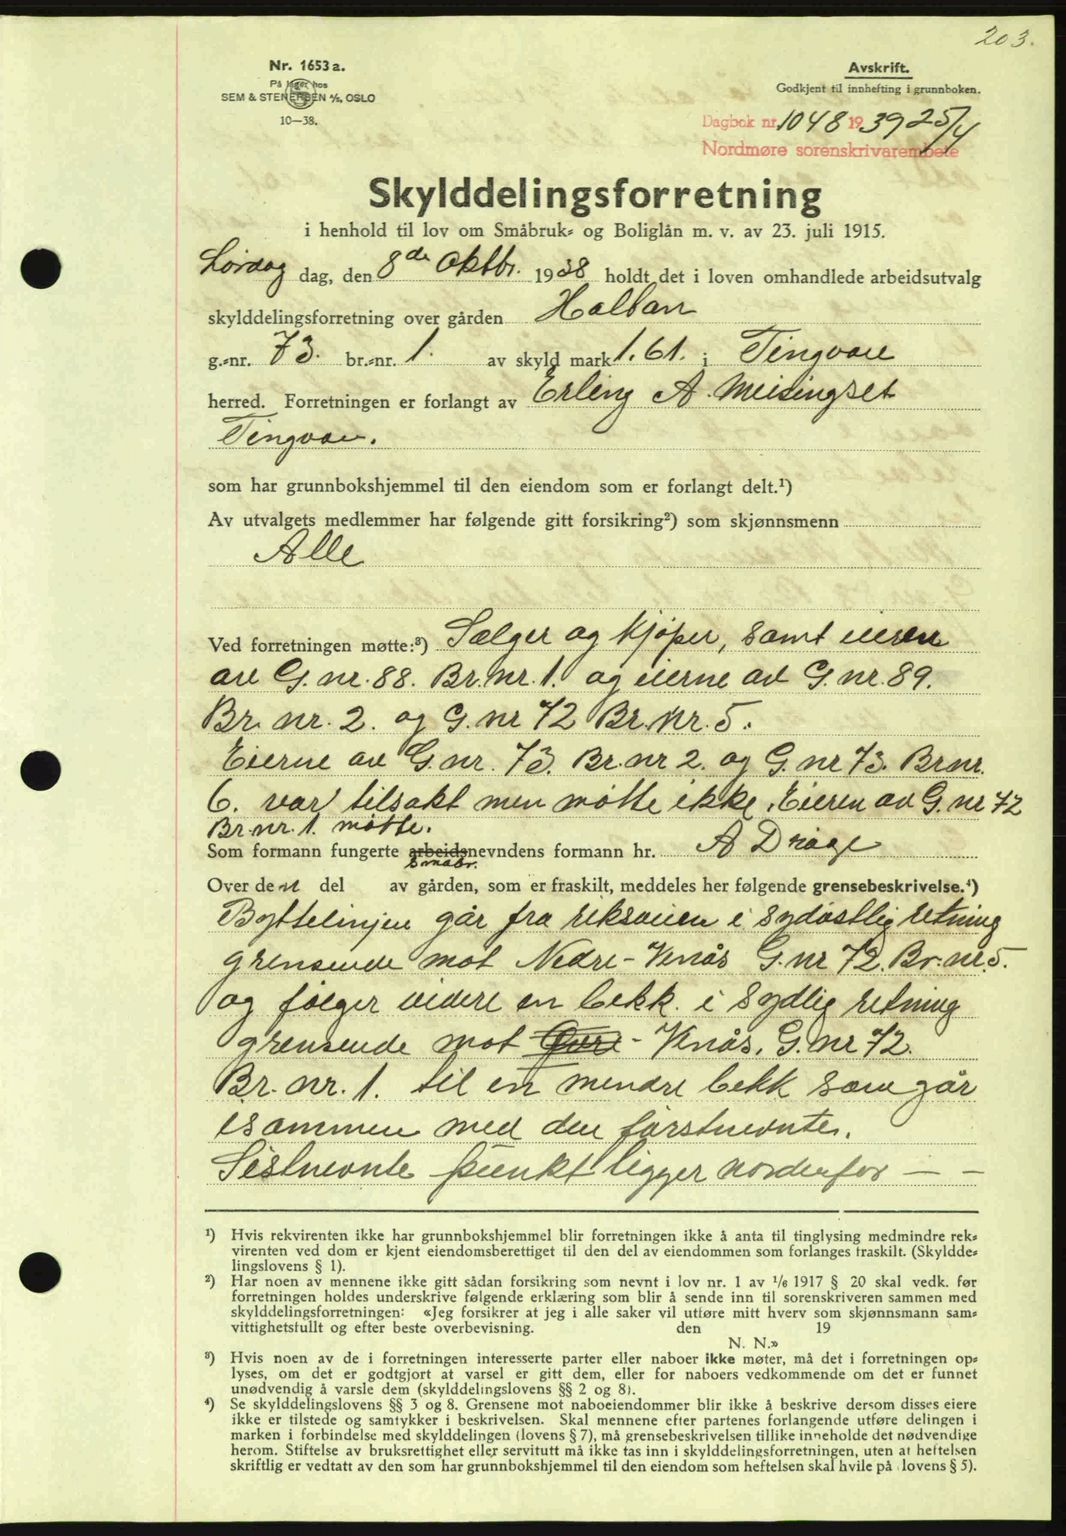 203.
Nr. 1653 a.
På lager hos
SEM & STENERSEN A/S, OSLO
10—38.
Avskrift.
Godkjent til innhefting i grunnboken.
Dagbok nr. 1048 1939 25/4
Nordmøre sorenskrivarembete
Skylddelingsforretning
i henhold til lov om Småbruk- og Boliglån m. v. av 23. juli 1915.
Lørdag dag, den 8de Oktbr. 1938 holdt det i loven omhandlede arbeidsutvalg
skylddelingsforretning over gården Halsan
g.-nr. 73. br.-nr. 1. av skyld mark 1.61. i Tingvoll
herred. Forretningen er forlangt av Erling A. Meisingset
Tingvoll.
som har grunnbokshjemmel til den eiendom som er forlangt delt.¹)
Av utvalgets medlemmer har følgende gitt forsikring²) som skjønnsmenn
Alle
Ved forretningen møtte:³) Sælger og kjøper, samt eieren
av G.nr. 88. Br.nr. 1. og eierne av G.nr. 89.
Br. nr. 2. og G.nr 72 Br.nr. 5.
Eierne av G.nr. 73. Br.nr 2. og G.nr 73. Br.nr.
6. var tilsakt men møtte ikke. Eieren av G.nr 72
Br.nr. 1. møtte.
Som formann fungerte arbeidsnevndens formann hr. A Drage
Småbr.
Over den del av gården, som er fraskilt, meddeles her følgende grensebeskrivelse.⁴)
Byttelinjen går fra riksveien i sydøstlig retning
grensende mot Nedre-Venås G.nr 72. Br.nr. 5.
og følger videre en bekk i sydlig retning
grensende mot Øvre - Venås. G.nr 72.
Br. nr. 1. til en mindre bekk som går
isammen med den førstnevnte.
Sistnevnte punkt ligger nordenfor — —
¹) Hvis rekvirenten ikke har grunnbokshjemmel blir forretningen ikke å anta til tinglysing medmindre rek-
virenten ved dom er kjent eiendomsberettiget til den del av eiendommen som forlanges fraskilt. (Skyldde-
lingslovens § 1).
²) Har noen av mennene ikke gitt sådan forsikring som nevnt i lov nr. 1 av 1/6 1917 § 20 skal vedk. før
forretningen holdes underskrive følgende erklæring som blir å sende inn til sorenskriveren sammen med
skylddelingsforretningen: «Jeg forsikrer at jeg i alle saker vil utføre mitt hverv som skjønnsmann sam-
vittighetsfullt og efter beste overbevisning. den 19
N. N.»
³) Hvis noen av de i forretningen interesserte parter eller naboer ikke møter, må det i forretningen op-
lyses, om det er godtgjort at varsel er gitt dem, eller for naboers vedkommende om det er funnet
unødvendig å varsle dem (skylddelingslovens §§ 2 og 8).
⁴) Se skylddelingslovens §§ 3 og 8. Grensene mot naboeiendommer blir ikke å beskrive dersom disses eiere
ikke er tilstede og samtykker i beskrivelsen. Skal mennene efter partenes forlangende utføre delingen i
marken i forbindelse med skylddelingen (lovens § 7), må grensebeskrivelsen tillike inneholde det nødvendige
herom. Stiftelse av bruksrettighet eller servitutt må ikke tas inn i skylddelingsforretningen, uten at heftelsen
skriftlig er vedtatt av den som har grunnbokshjemmel til den eiendom som heftelsen skal hvile på (lovens § 5).